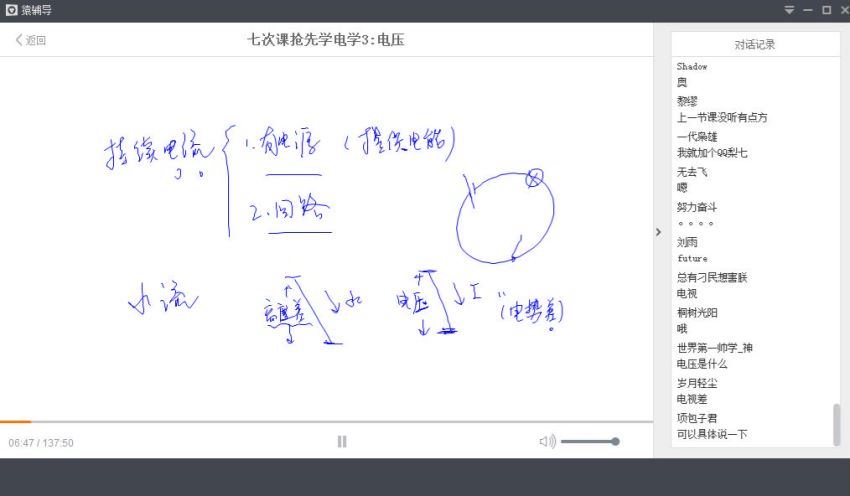 猿辅导
返回
七次课抢先学电学3:电压
对话记录
持续电流
1.有电源(提供电能)
2.回路
水流
高度差
水
电压
I
(电势差)
06:47 / 137:50
Shadow
奥
黎缪
上一节课没听有点方
一代枭雄
我就加个QQ梨七
无去飞
嗯
努力奋斗
。。。。
刘雨
future
总有刁民想害朕
电视
桐树光阳
哦
世界第一帅学_神
电压是什么
岁月轻尘
电视差
项包子君
可以具体说一下